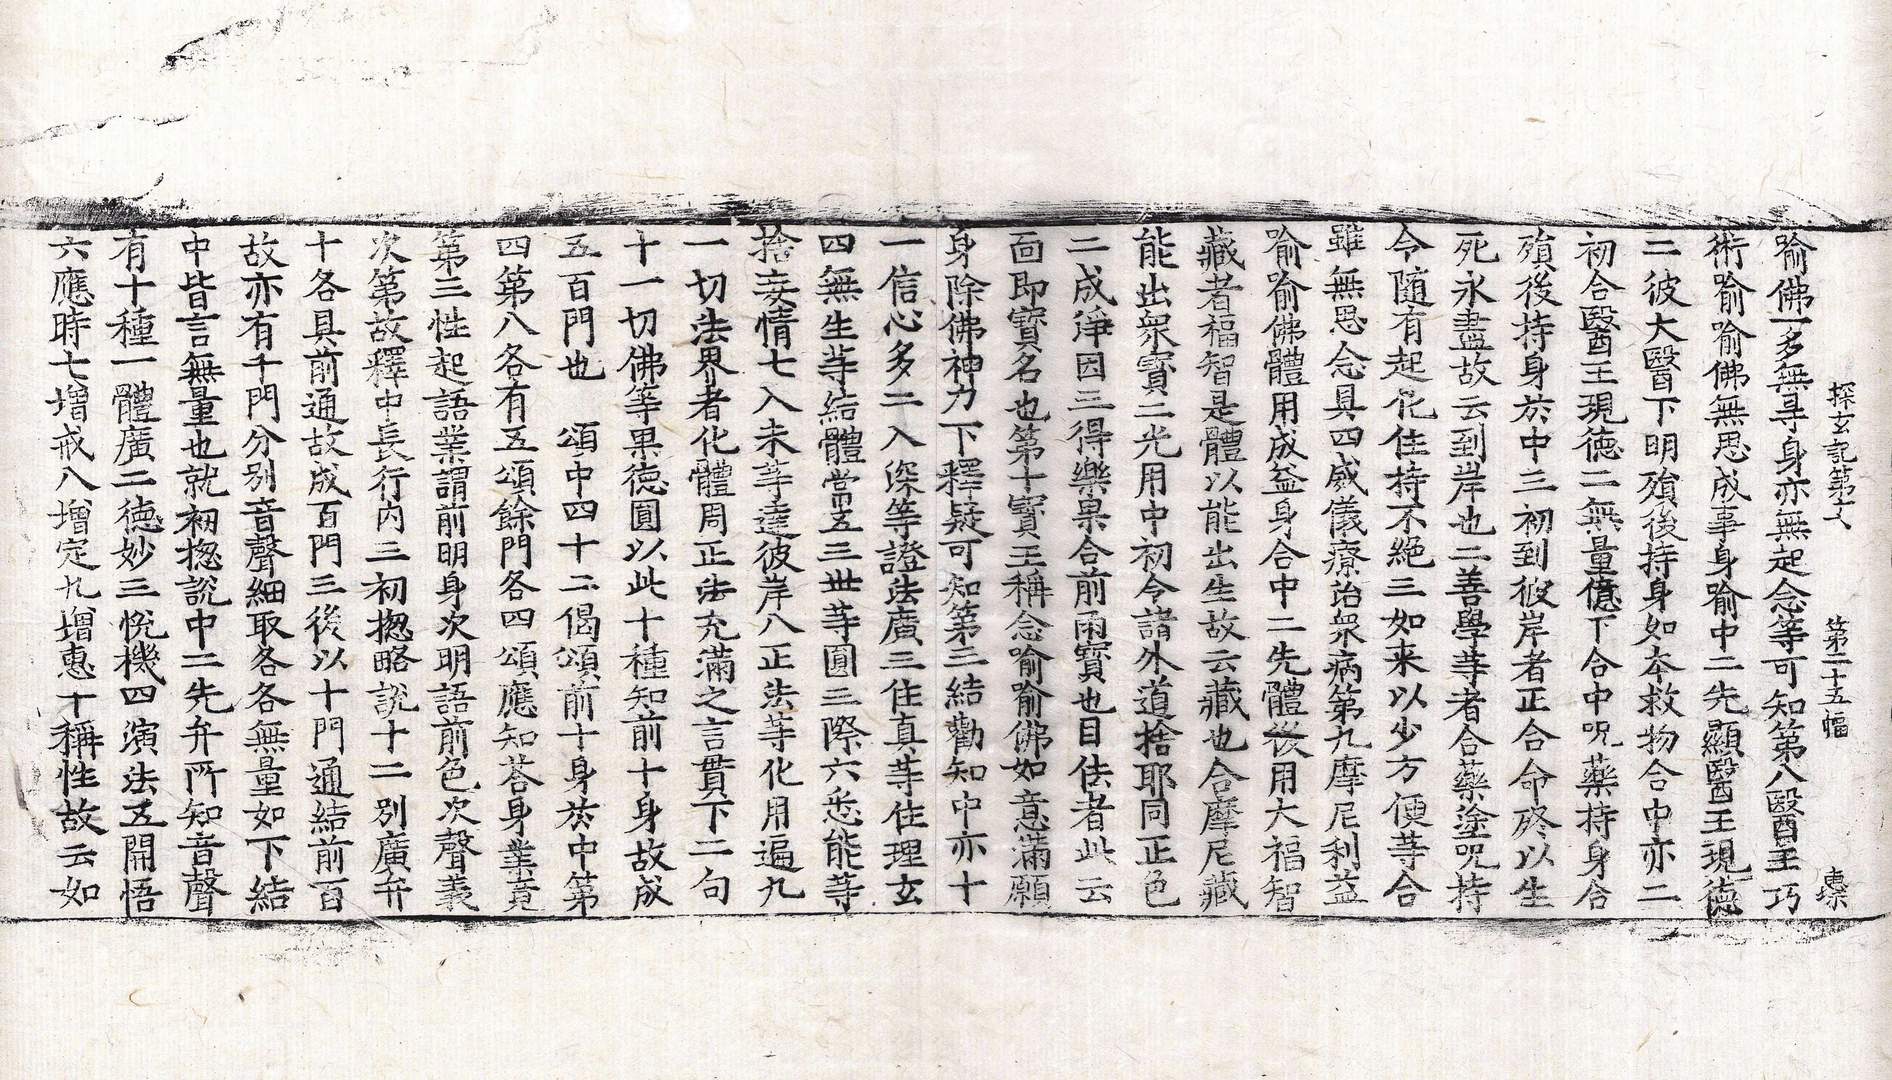 探玄記第十六　第二十五幅　惠琛
喻佛一多無㝵身亦無起念等可知第八醫王巧
術喻喻佛無思成事身喻中二先顯醫王現德
二彼大醫下明殞後持身如本救物合中亦二
初合醫王現德二無量億下合中呪藥持身合
殞後持身於中三初到彼岸者正合命終以生
死永盡故云到岸也二善學等者合藥塗呪持
令隨有起化住持不絕三如来以少方便等合
雖無思念具四威儀療治衆病第九摩尼利益
喻喻佛體用成益身合中二先體後用大福智
藏者福智是體以能出生故云藏也合摩尼藏
能出衆寳二光用中初令諸外道捨耶同正色
二成淨因三得樂果合前雨寳也目佉者此云
面即寳名也第十寳王稱念喻喻佛如意滿願
身除佛神力下釋疑可知第三結勸知中亦十
一信心多二入深等證法廣三住真等住理玄
四無生等結體常五三世等圓三際六悉能等
捨妄情七入未等達彼岸八正法等化用遍九
一切法界者化體周正法充滿之言貫下二句
十一切佛等果德圓以此十種知前十身故成
五百門也　頌中四十二偈頌前十身於中第
四第八各有五頌餘門各四頌應知荅身業竟
第三性起語業謂前明身次明語前色次聲義
次第故釋中長行内三初揔略說十二別廣弁
十各具前通故成百門三後以十門通結前百
故亦有千門分別音聲細取各各無量如下結
中皆言無量也就初揔說中二先弁所知音聲
有十種一體廣二德妙三悅機四演法五開悟
六應時七增戒八增定九增惠十稱性故云如